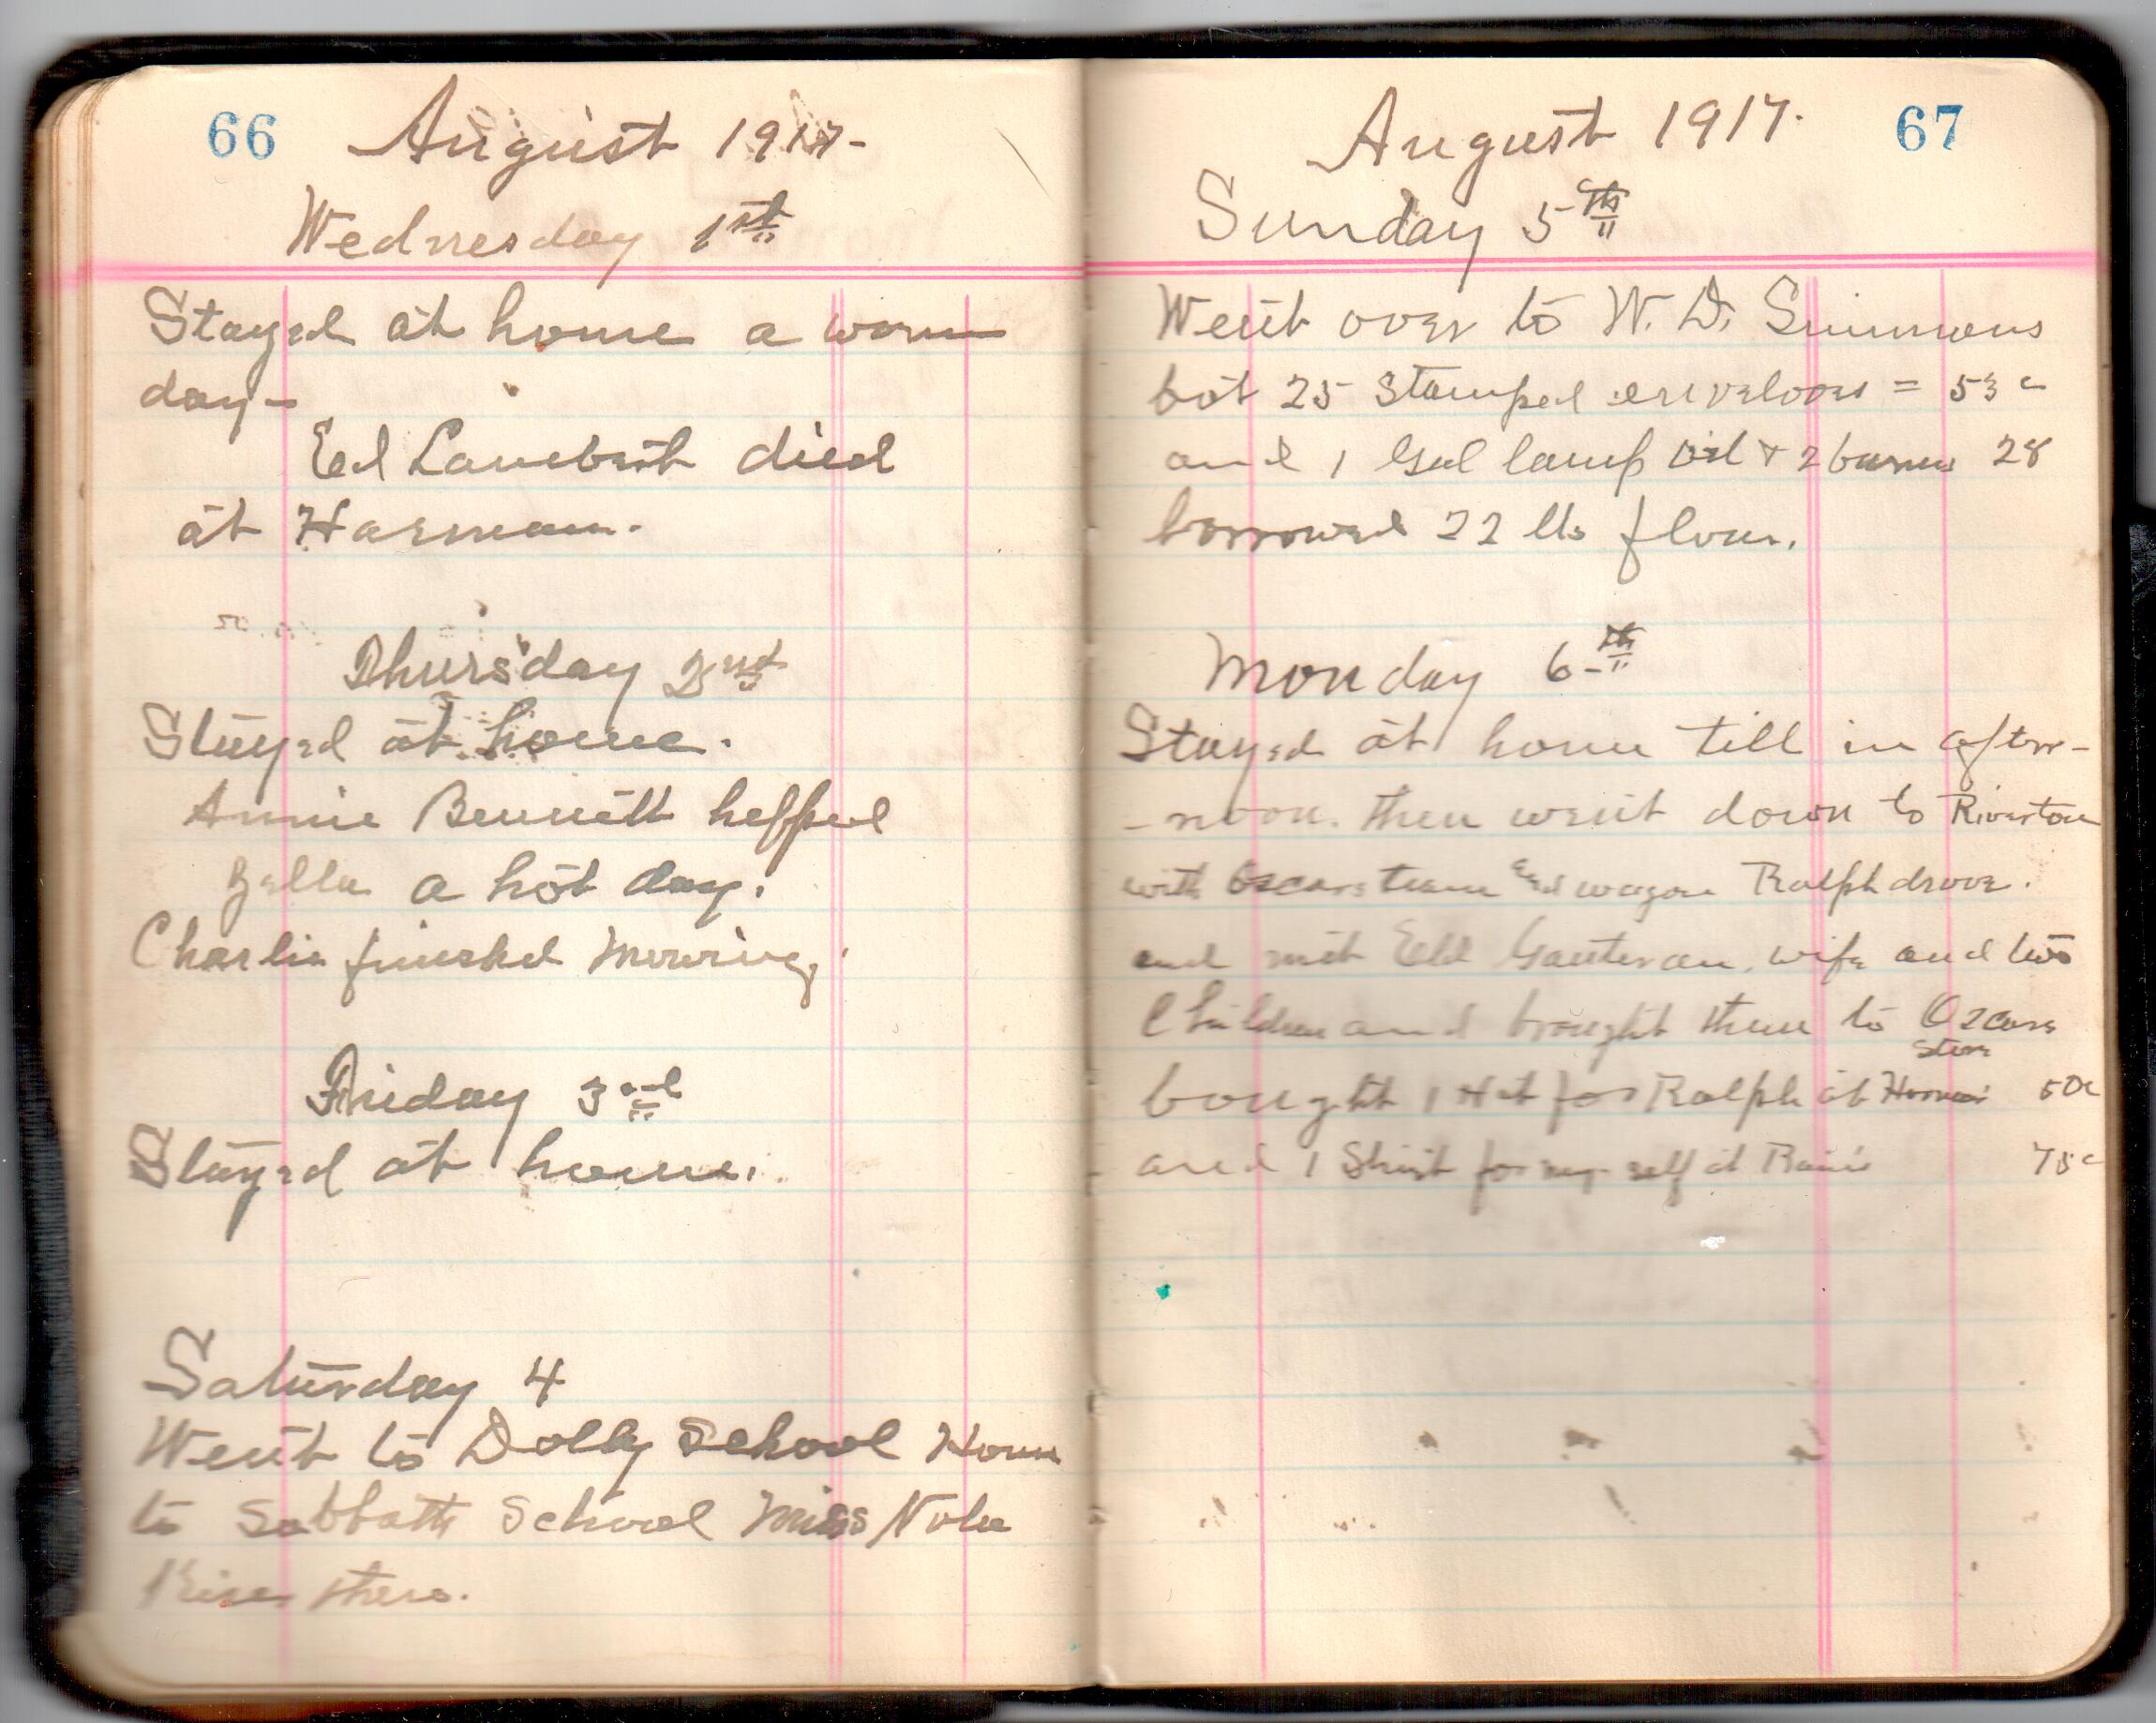 66 August 1917-
Wednesday 1st
Stayed at home a warm
day-
Ed Lambert died
at Harman.
Thursday 2nd
Stayed at home.
Annie Bennett helped
Zella a hot day.
Charlie finished Mowing.
Friday 3rd
Stayed at home.
Saturday 4
Went to Dolly School House
to Sabbath School Miss Nola
there.
August 1917. 67
Sunday 5th
Went over to W. D. Simmons
bot 25 Stamped envelopes = 53c
and 1 Gal lamp oil & 2 28
borrowed 22 lbs flour.
Monday 6th
Stayed at home till in after-
-noon. then went down to Riverton
with Oscars team and wagon Ralph drove.
and met Eld wife and two
Children and brought them to Oscars
Store
bought 1 Hat for Ralph at 50c
and 1 Shirt for my self at 75c